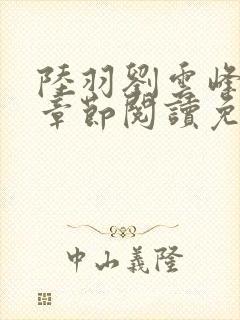 陸羽劉雲峰
章節閱讀免
中山義隆